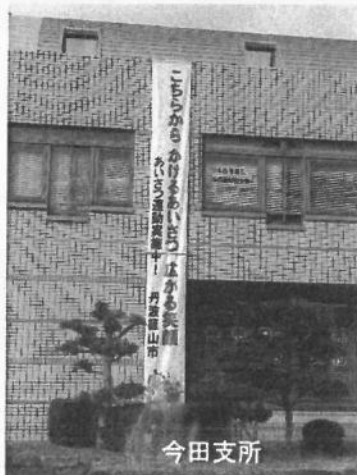 こちらから かけるあいさつ 広がる笑顔
あいさつ運動実施中！ 丹波篠山市
今田支所